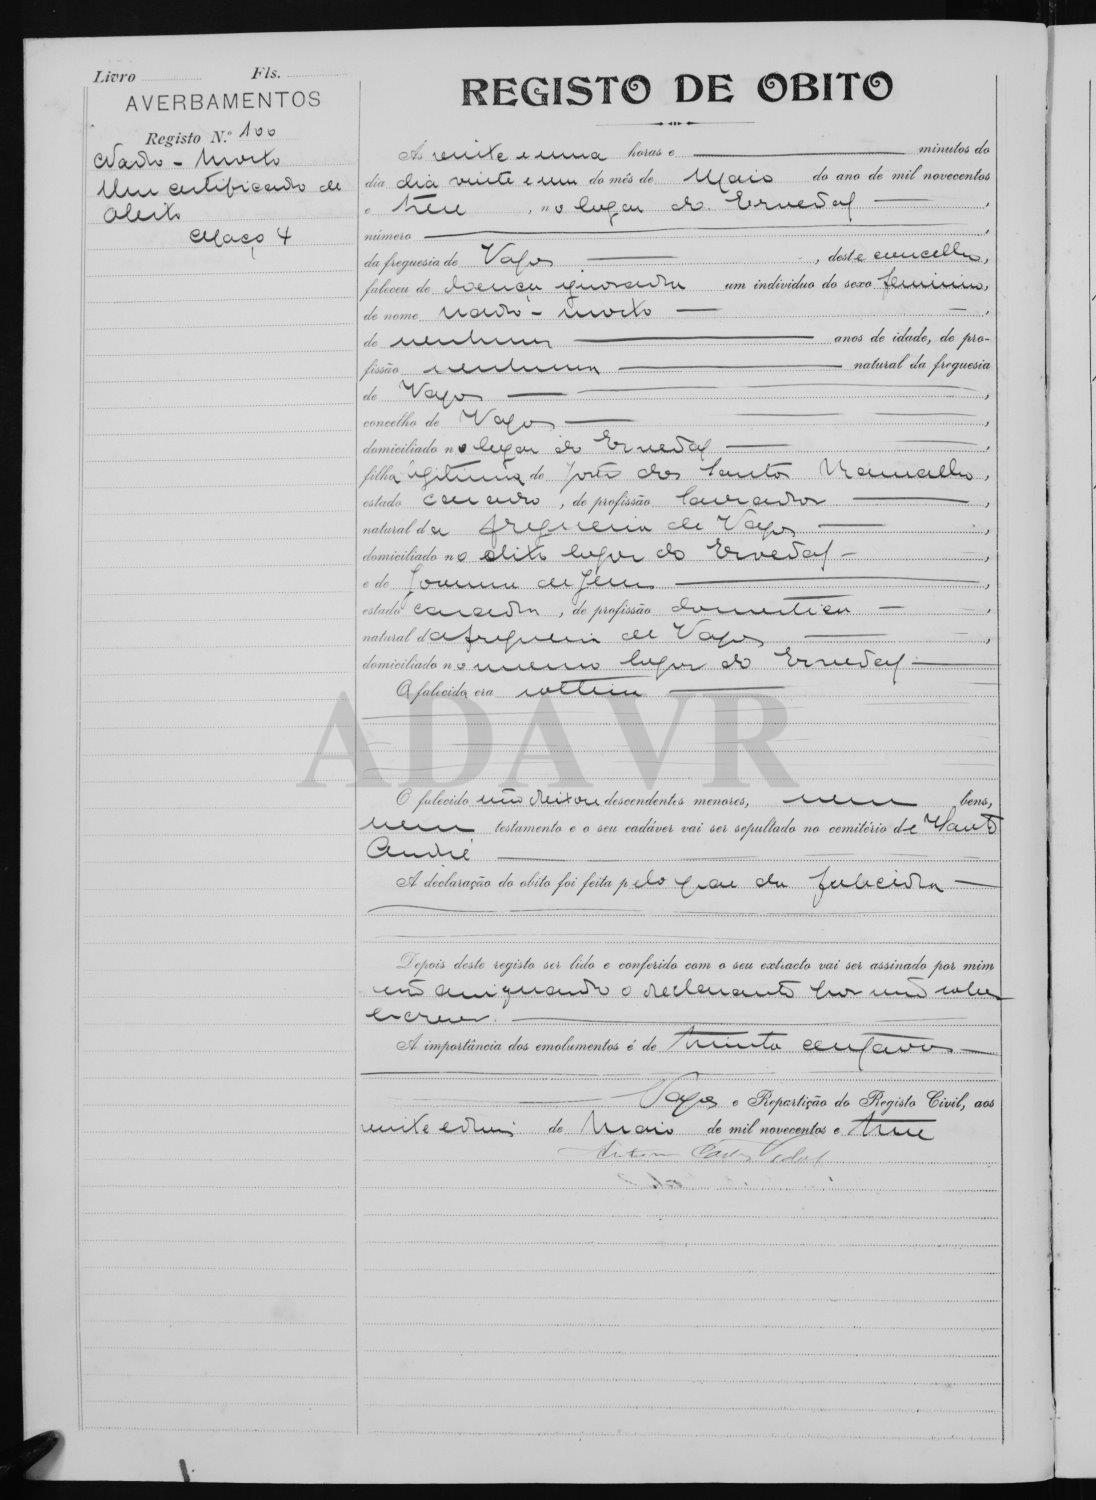 Livro Fls.
AVERBAMENTOS
Registo N.º 100
Nado-Morto
Um certificado de
obito
Maço 4
REGISTO DE OBITO
Ás vinte e uma horas e minutos do
dia dia vinte e um do mês de Maio do ano de mil novecentos
e treze, no lugar do Ervedal,
número
da freguesia de Vagos, deste concelho,
faleceu de doença ignorada um individuo do sexo feminino,
de nome nado-morto
de nenhuns anos de idade, de pro-
fissão nenhuma natural da freguesia
de Vagos,
concelho de Vagos,
domiciliado no lugar do Ervedal,
filha legitima de João dos Santos Ramalho,
estado casado, de profissão lavrador
natural da freguesia de Vagos,
domiciliado no dito lugar do Ervedal,
e de Joanna de Jesus,
estado casada, de profissão domestica,
natural da freguesia de Vagos,
domiciliado no mesmo lugar do Ervedal
A falecida era solteira
O falecido não deixou descendentes menores, nem bens,
nem testamento e o seu cadáver vai ser sepultado no cemitério de Santo
André
A declaração do obito foi feita pelo pae da falecida
Depois deste registo ser lido e conferido com o seu extracto vai ser assinado por mim
não assignando o declarante por não saber
escrever.
A importância dos emolumentos é de trinta centavos
Vagos e Repartição do Registo Civil, aos
vinte e dois de Maio de mil novecentos e treze
ADAVR